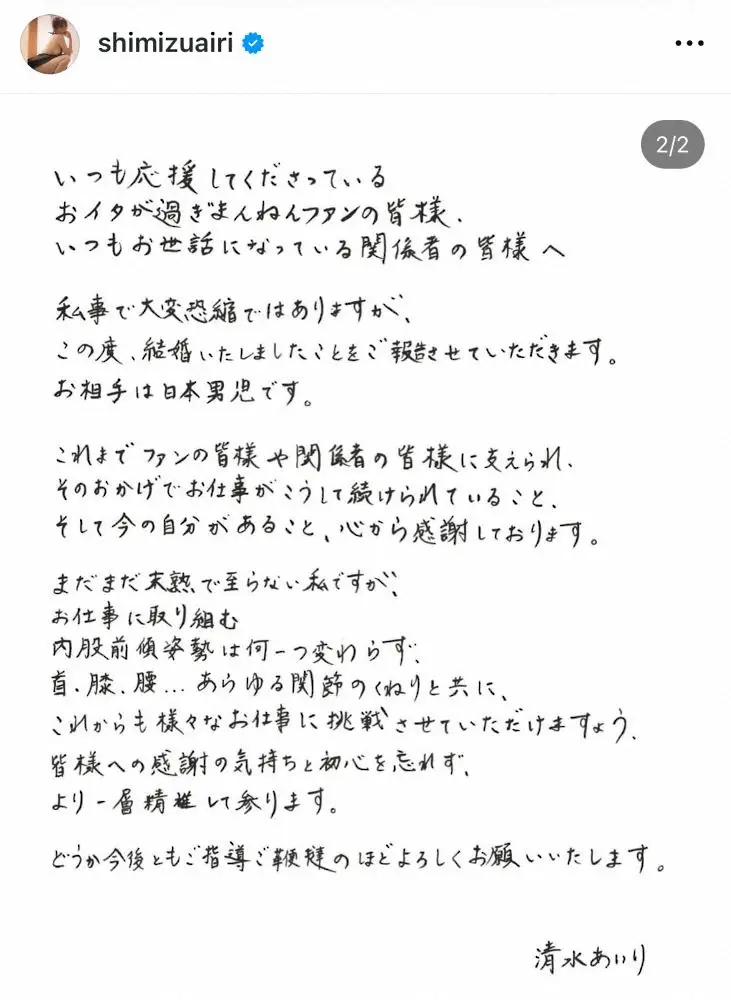 shimizuairi
2/2
いつも応援してくださっている
おイタが過ぎまんねんファンの皆様、
いつもお世話になっている関係者の皆様へ
私事で大変恐縮ではありますが、
この度、結婚いたしましたことをご報告させていただきます。
お相手は日本男児です。
これまでファンの皆様や関係者の皆様に支えられ、
そのおかげでお仕事がこうして続けられていること、
そして今の自分があること、心から感謝しております。
まだまだ未熟で至らない私ですが、
お仕事に取り組む
内股前傾姿勢は何一つ変わらず、
首、膝、腰...あらゆる関節のくねりと共に、
これからも様々なお仕事に挑戦させていただけますよう、
皆様への感謝の気持ちと初心を忘れず、
より一層精進して参ります。
どうか今後ともご指導ご鞭撻のほどよろしくお願いいたします。
清水あいり